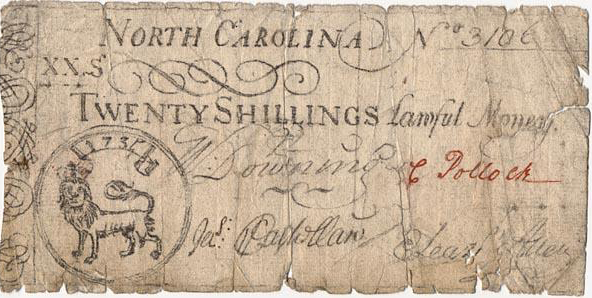 NORTH CAROLINA No 3106
XX.S
TWENTY SHILLINGS Lawful Money.
173
W Downing C Pollock
Jas: Castellaw